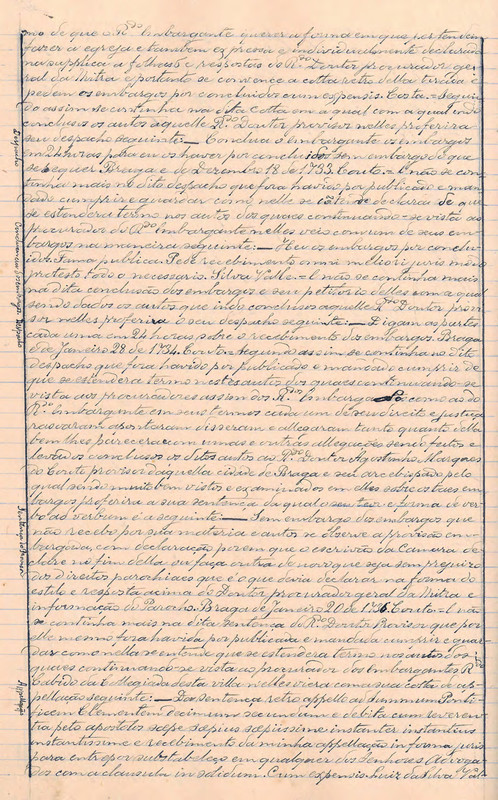 mo de que o Rdo Embargante querer a forma em que pertendem
fazer a egreja e tambem expressa e individualmente declarada
na supplica a folhas 6 e respostas do Rdo Doutor procurador ge-
ral da Mitra e portanto se convence a cotta retro della e
pedem os embargos por concluidos cum expensis. Costa.= Segun-
do assim se continha na dita cotta com a qual indo
conclusos os autos aquelle Rdo Doutor provisor nelles proferira
seu despacho seguinte:— Conclua o Embargante os embargos
em 24 horas para eu os haver por concluidos sem embargo do que
se requer Braga e de Dezembro 18 de 1733. Couto.= E não se con-
tinha mais no dito despacho que fora havido por publicado e man-
dado cumprir e guardar como nelle se contem e declara de que
se estendera termo nos autos dos quaes continuando-se vista ao
procurador do Rdo Embargante nelles veio com de seus em-
bargos na maneira seguinte:— Hei os embargos por conclu-
idos. Fama publica. Pede recebimento omni meliori juris modo
protesto todo o necessario. Silva Valle.= E não se continha mais
na dita conclusão dos embargos e seu petitorio delles com a qual
sendo dados os autos que indo conclusos aquelle Rdo Doutor provi-
sor nelles proferira o seu despacho seguinte:— Digam as partes
cada uma em 24 horas sobre o recebimento dos embargos. Braga
de Janeiro 28 de 1734. Couto.= Segundo assim se continha no dito
despacho que fora havido por publicado e mandado cumprir de
que se estendera termo nestes autos dos quaes continuando-se
vista aos procuradores assim dos Rdos Embargados como ao do
Rdo Embargante em seus termos cada um de seu direito e justiça
rasoaram apontaram disseram e allegaram tanto quanto della
bem lhes parecera com umas e outras allegações sendo feitos e
levados conclusos os ditos autos ao Rdo Doutor Agostinho Marques
do Couto provisor daquella cidade de Braga e seu arcebispado pelo
qual sendo muito bem vistos e examinados em elles sobre os taes em-
bargos proferira a sua sentença da qual o seu teor e forma de ver-
bo ad verbum é a seguinte:— Sem embargo dos embargos que
não recebo por sua materia e autos se observe a provisão em-
bargada, com declaração porem que o escrivão da Camara de-
clare no fim della ou faça outra de novo que seja sem prejuizo
dos direitos parochiaes que é o que devia declarar na forma do
estilo e resposta acima do Doutor procurador geral da Mitra e
informação do Parocho. Braga de Janeiro 20 de 1736. Couto.= E não
se continha mais na dita sentença do Rdo Doutor Provisor que por
elle mesmo fora havida por publicada e mandada cumprir e guar-
dar como nella se contem e que se estendera termo nos autos dos
quaes continuando-se vista ao procurador dos Embargantes R
Cabido da Collegiada desta villa nelles viera com a sua cotta de ap-
pellação seguinte:— Da sentença retro appello ad summum Ponti-
ficem Clementem decimum secundum e debita cum reveren-
tia peto apostolos sæpe sæpius sæpissime instanter instantius
instantissime e recebimento da minha appellação in forma juris
para entrepor substabeleço em qualquer dos Senhores Advoga-
dos com a clausula in solidum. Cum expensis. Luiz da Silva Val-
Despacho
Conclusão dos Embargos Despacho
Sentença do Provisor
Appellação